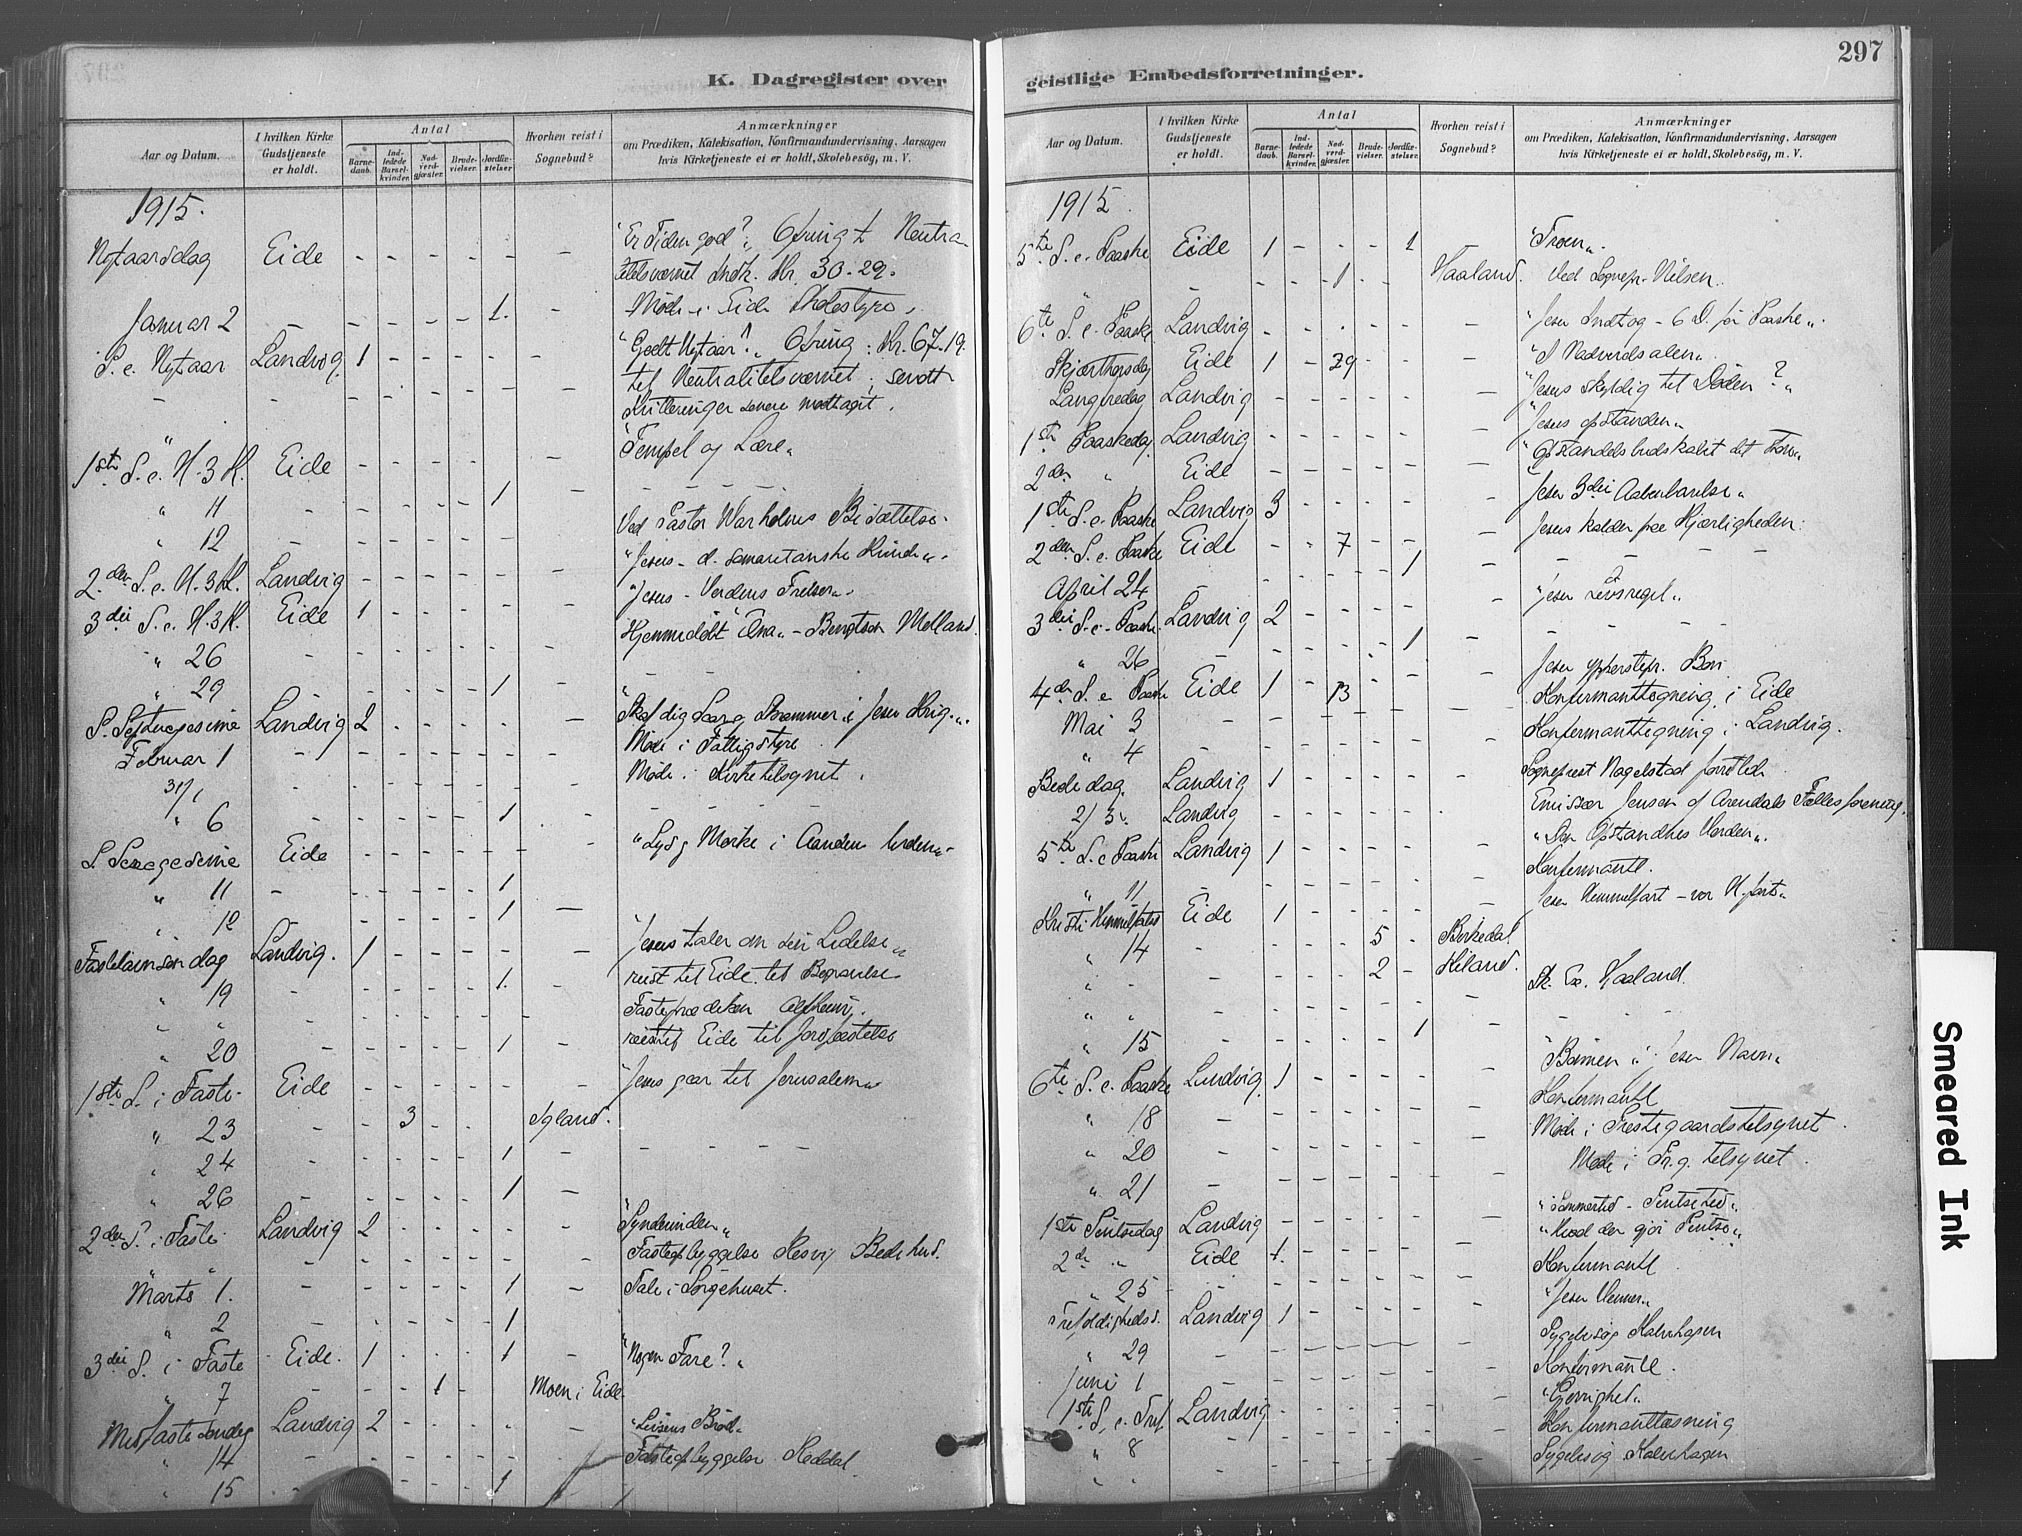 297
K. Dagregister over
Aar og Datum.
I hvilken Kirke Gudstjeneste er holdt.
Antal
Barnedaab.
Indledede Barselkvinder.
Nadverdgjæster.
Brudevielser.
Jordfæstelser
Hvorhen reist i Sognebud?
Anmærkninger
om Prædiken, Katekisation, Konfirmandundervisning. Aarsagen
hvis Kirketjeneste ei er holdt, Skolebesög, m. V.
1915.
Nytaarsdag Eide - - - - - - "Er Tiden god? Ofring t. Neutra-
litetsværnet Indk. Kr. 30-29.
Januar 2 - - - - - 1. - Møde i Eide Skolestyre.
S. e. Nytaar Landvig 1 - - - - - "Godt Nytaar!" Ofring: Kr. 67-19
til Neutralitetsværnet; sendt
Kvitteringer senere modtaget.
1ste S. e. H. 3 K. Eide - - - - - - "Tempel og Lære"
" 11 - - - - - 1 - - - - -
" 12 - - - - - - Ved Pastor Warholms Bisættelse.
2den S. e. H. 3 K. Landvig - - - - - - "Jesus - d. samaritanske Kvinde".
3die S. e. H. 3 K. Eide 1 - - - - - "Jesus - Verdens Frelser".
" 26 - - - - - - Hjemmedøbt "Ana" - Bengtson Molland.
" 29 - - - - - 1 -
S. Septuagesima Landvig 2 - - - - - Skal dig Saar og Skrammer i Jesu Krig".
Februar 1 - - - - - - Møde i Fattigstyre
31/1 - - - - - - Møde i Kirketilsynet.
" 6 - - - - - 1 - - - -
S. Sexagesima Eide - - - - - - "Lys og Mørke i Aandens Verden"
" 11 - - - - - 1
" 12 - - - - - 1 -
Fastelavnsøndag Landvig. 1 - - - - - "Jesus taler om sin Lidelse"
" 19 - - - - - 1. - reist til Eide til Begravelse.
" " - - - - - - Fasteprædiken
" 20 - - - - - 1 - reist til Eide til Jordfæstelse
1ste S. i Faste. Eide - - - - - - "Jesus gaar til Jerusalem"
" 23 - - - 3 - - Igland.
" 24 - - - - - 1 - - - - -
" 26 - - - - - 1 -
2den S. i Faste. Landvig 2 - - - - - "Synderinden"
" " - - - - - - Fasteopbyggelse Resvig Bedehus.
Marts 1. - - - - - 1 - Tale i Sørgehuset.
" 2 - - - - - 1
3die S. i Faste Eide. 1 - - - 1 - "Nogen Fare?"
" 7 - - - 1 - Moen i Eide.
Midfaste Søndag Landvig 2 - - - - - "Livsens Brød"
" 14 - - - - - - Fasteopbyggelse Reddal.
" 15 - - - - - 1
geistlige Embedsforretninger.
Aar og Datum.
I hvilken Kirke Gudstjeneste er holdt.
Antal
Barnedaab.
Indledede Barselkvinder.
Nadverdgjæster.
Brudevielser.
Jordfæstelser.
Hvorhen reist i Sognebud?
Anmærkninger
om Prædiken, Katekisation, Konfirmandundervisning. Aarsagen
hvis Kirketjeneste ei er holdt, Skolebesög, m. V.
1915.
5te S. i Faaste Eide 1 - - - 1 "Troen".
" - - - 1 - - Haaland. Ved Sognepr. Nilsen.
6te S. i Faaste Landvig - - - - - - "Jesu Indtog - 6 D. før Paaske".
Skjærthorsdag Eide 1 - 29 - - - "I Nadverdsalen".
Langfredag Landvig - - - - - - "Jesus skyldig til Døden?"
1ste Paaskedag Landvig - - - - - - "Jesus opstanden"
2den " Eide - - - - - - "Opstandelsbudskabet
1ste S. e. Paaske Landvig 3 - - - - - "Jesu 3die Aabenbarelse"
2den S. e. Paaske Eide - - 7 - - - Jesus kalder paa Kjærligheden.
April 24 - - - - - 1 - - - - -
3die S. e. Paaske. Landvig 2 - - - - - "Jesu Livsregel"
" 26 - - - - - 1 - - - - -
4de S. e. Paaske Eide 1 - 13 - - - Jesu ypperstepr. Bøn
Mai 3 - - - - - - Konfirmanttegning i Eide
" 4 - - - - - - Konfirmanttegning i Landvig.
Bededag. Landvig 1 - - - - - Sogneprest Nagelstad
2/5. Landvig - - - - - Emissær Jensen af Arendals Fællesforening.
5te S. e. Paaske Landvig 1 - - - - - "Den Opstandnes Verden".
" 11 - - - - - - Konfirmantl.
Kristi Himmelfartsd. Eide 1 - - - - - Jesu Himmelfart - vor H.fart"
" 14 - - - 5 - Birkedal.
" - - - - 2 - Kiland.
" " - - - - - - Haaland.
" 15 - - - - 1 - - - -
6te S. e. Paaske Landvig 1 - - - - - "Bønnen i Jesu Navn"
" 18 - - - - - - Konfirmantl
" 20 - - - - - - Møde i Prestegaardstilsynet.
" 21 - - - - - - Møde i Pr.g. tilsynet.
1ste Pintsedag Landvig - - - - - - "Sommertid - Pintsetid"
2de " Eide 1. - - - - - "Hvad der gjør Pintse"
" 25 - - - - - - Konfirmantl
Trefoldighedss. Landvig 1 - - - - - "Jesu Venner"
" 29 - - - - - - Sygebesøg Kalvehagen
Juni 1 - - - - - - Konfirmantl.
1ste S. e. Tref. Landvig - - - - - - "Gjerrighed"
" 8 - - - - - - Konfirmantlæsning
" " - - - - - - Sygebesøg Kalvehagen
Smeared Ink